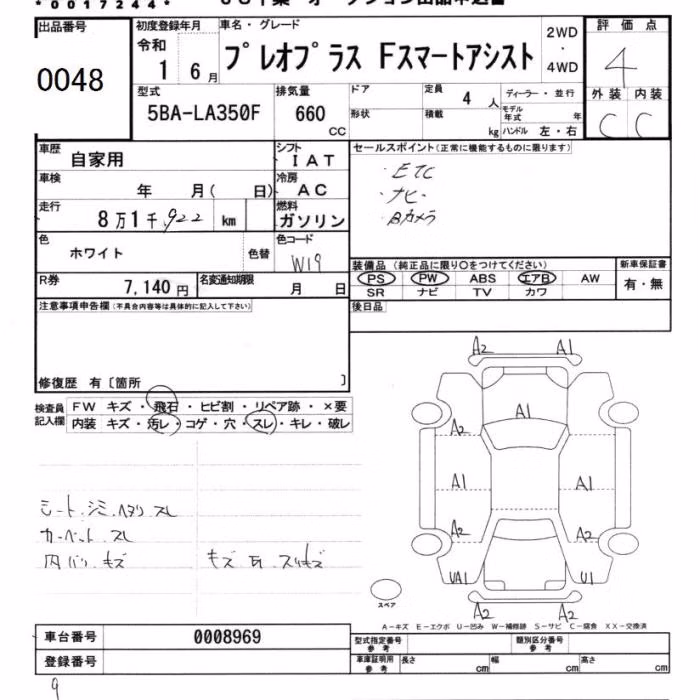 *0017244*
出品番号
0048
初度登録年月
令和
1 6月
車名・グレード
プレオプラス Fスマートアシスト
2WD
・
4WD
評価点
4
外装 内装
C C
型式
5BA-LA350F
排気量
660
CC
ドア
形状
定員
4 人
積載
kg
ディーラー・並行
モデル年式 年
ハンドル 左・右
車歴
自家用
シフト
IAT
車検
年 月( 日)
冷房
AC
走行
8万1千922 km
燃料
ガソリン
色
ホワイト
色替
色コード
W19
R券
7,140円
名変通知期限
月 日
セールスポイント(正常に機能するものに限ります)
・ETC
・ナビ
・Bカメラ
装備品 (純正品に限り○をつけてください)
PS PW ABS エアB AW
SR ナビ TV カワ
新車保証書
有・無
後日品
注意事項申告欄(不具合内容等は具体的に記入して下さい)
修復歴 有〔箇所 〕
検査員記入欄
FW キズ・飛石・ヒビ割・リペア跡・×要
内装 キズ・汚レ・コゲ・穴・スレ・キレ・破レ
シート シミ ヘタリ スレ
カーペット スレ
内バリ キズ
A2 A1
A1
A2
A1 A1
A2 A2
UA1 U1
A2 A2
スペア
A−キズ E−エクボ U−凹み W−補修跡 S−サビ C−腐食 XX−交換済
車台番号
0008969
登録番号
型式指定番号
参考
類別区分番号
参考
車庫証明用
参考
長さ cm
幅 cm
高さ cm
9